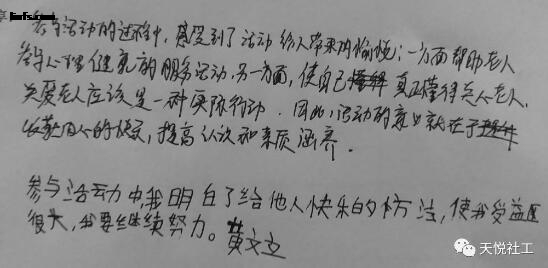 享
参与活动的过程中，感受到了活动给人带来的愉悦；一方面帮助老人
参与心理健康的服务活动，另一方面，使自己真正懂得关爱老人，
关爱老人应该是一种实际行动。因此，活动的意义就在于
的快乐，提高认识和素质涵养。
参与活动中，我明白了给他人快乐的方法，使我受益匪
很大，我要继续努力。黄文立
天悦社工